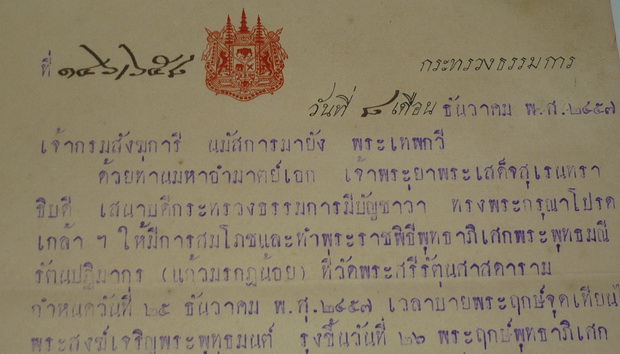 ที่ ๑๔๖/๖๕๘
กระทรวงธรรมการ
วันที่ ๘ เดือน ธันวาคม พ.ศ.๒๔๕๗
เจ้ากรมสังฆการี นมัสการมายัง พระเทพกวี
ด้วยท่านมหาอำมาตย์เอก เจ้าพระยาพระเสด็จสุเรนทรา
ธิบดี เสนาบดีกระทรวงธรรมการมีบัญชาว่า ทรงพระกรุณาโปรด
เกล้า ฯ ให้มีการสมโภชและทำพระราชพิธีพุทธาภิเศกพระพุทธมณี
รัตนปฏิมากร (แก้วมรกฎน้อย) ที่วัดพระสรีรัตนสาสดาราม
กำหนดวันที่ ๒๕ ธันวาคม พ.ศ.๒๔๕๗ เวลาบ่ายพระฤกษ์จุดเทียน
พระสงฆ์เจริญพระพุทธมนต์ รุ่งขึ้นวันที่ ๒๖ พระฤกษ์พุทธาภิเศก